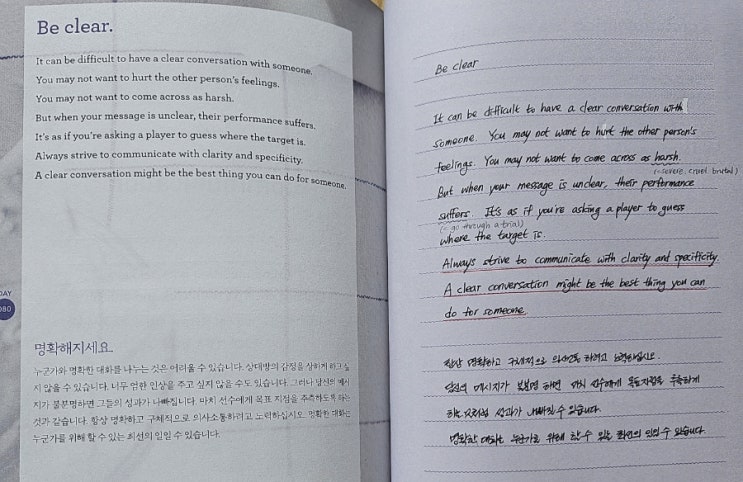 Be clear.
It can be difficult to have a clear conversation with someone.
You may not want to hurt the other person's feelings.
You may not want to come across as harsh.
But when your message is unclear, their performance suffers.
It's as if you're asking a player to guess where the target is.
Always strive to communicate with clarity and specificity.
A clear conversation might be the best thing you can do for someone.
DAY
080
명확해지세요
누군가와 명확한 대화를 나누는 것은 어려울 수 있습니다. 상대방의 감정을 상하게 하고 싶
지 않을 수 있습니다. 너무 엄한 인상을 주고 싶지 않을 수도 있습니다. 그러나 당신의 메시
지가 불분명하면 그들의 성과가 나빠집니다. 마치 선수에게 목표 지점을 추측하도록 하는
것과 같습니다. 항상 명확하고 구체적으로 의사소통하려고 노력하십시오. 명확한 대화는
누군가를 위해 할 수 있는 최선의 일일 수 있습니다.
Be clear
It can be difficult to have a clear conversation with
someone. You may not want to hurt the other person's
feelings. You may not want to come across as harsh.
(=severe. cruel. brutal)
But when your message is unclear, their performance
suffers. It's as if you're asking a player to guess
(= go through a trial)
where the target is.
Always strive to communicate with clarity and specificity.
A clear conversation might be the best thing you can
do for someone.
항상 명확하고 구체적으로 의사소통 하려고 노력하십시오.
당신의 메시지가 불분명 하면 마치 선수에게 목표지점을 추측하게
하는 것처럼 성과가 나빠질 수 있습니다.
명확한 대화는 누군가를 위해 할 수 있는 최선의 일일 수 있습니다